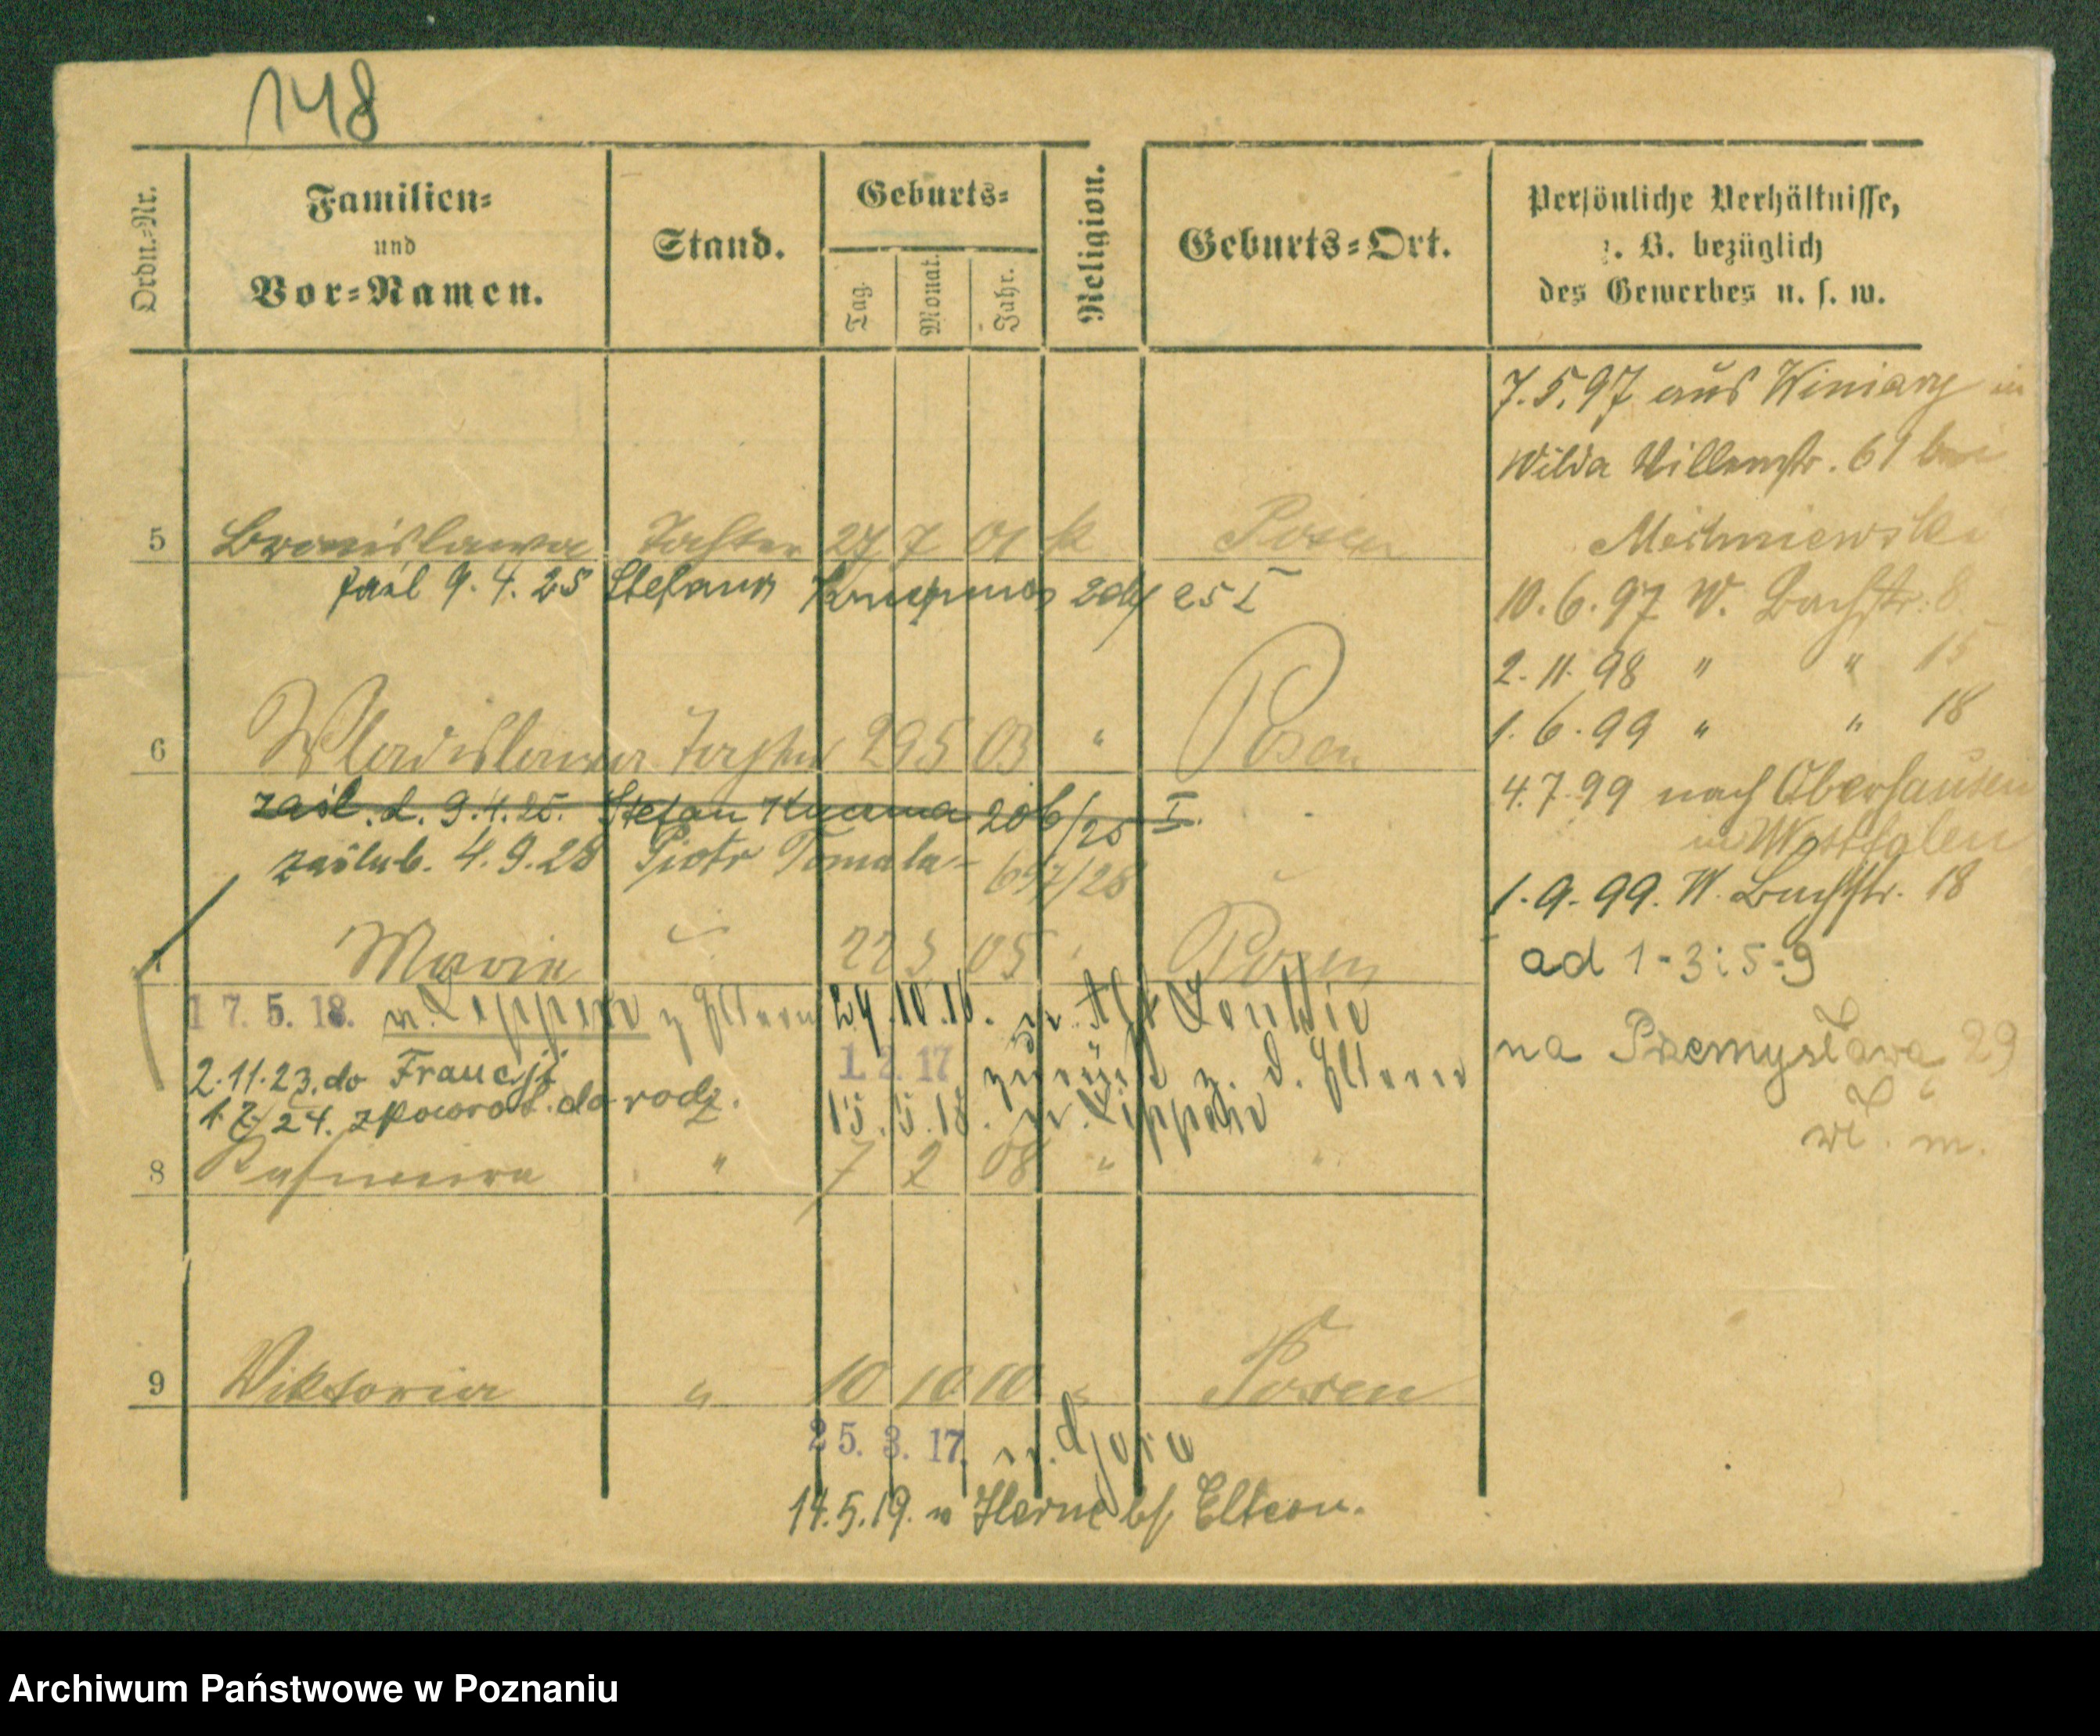 148
Ordn.-Nr.
Familien-
und
Vor-Namen.
Stand.
Geburts-
Tag.
Monat.
Jahr.
Religion.
Geburts-Ort.
Persönliche Verhältnisse,
z. B. bezüglich
des Gewerbes u. s. w.
5 Bronislawa Tochter 27 7 01 k Posen
9. 4. 25 Stefan
6 Wladislawa Tochter 29 5 03 " Posen
zaśl. d. 9.4.25. Stefan Kucma 206/25 I.
zaślub. 4.9.28 Piotr Tomala - 697/28
Maria 22 3 05 Posen
17. 5. 18. n. z Eltern 24.10.16. n.
2.11.23. do Francji 1. 2. 17 zurück z. d. Eltern
24. z powrot. do rodz. 15.5.18. n.
8 Kasimira " 7 2 08 " "
9 Wiktoria " 10 10 10 " Posen
25. 3. 17.
14.5.19. n Herne bf. Eltern.
7.5.97 aus Winiary in
Wilda Villenstr. 61 bei
10.6.97 W. Bachstr. 8
2.11.98 " " 15
1.6.99 " " 18
4.7.99 nach Oberhausen
in Westfalen
1.9.99. W. Bachstr. 18
ad 1-3 i 5-9
na Przemysława 29
wł. m.
Archiwum Państwowe w Poznaniu